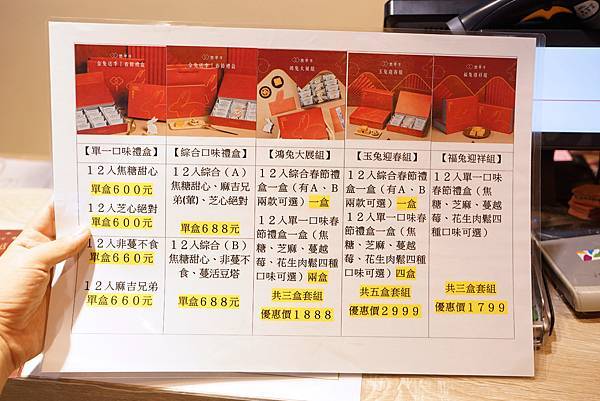 金兔送季｜春節禮盒
金兔送季｜春節禮盒
鴻兔大展組
玉兔迎春組
福兔迎祥組
【單一口味禮盒】
12入焦糖甜心
單盒600元
12入芝心絕對
單盒600元
12入非蔓不食
單盒660元
12入麻吉兄弟
單盒660元
【綜合口味禮盒】
12入綜合（A）
焦糖甜心、麻吉兄
弟(葷)、芝心絕對
單盒688元
12入綜合（B）
焦糖甜心、非蔓不
食、蔓活豆塔
單盒688元
【鴻兔大展組】
12入綜合春節禮
盒一盒（有A、B
兩款可選）一盒
12入單一口味春
節禮盒一盒（焦
糖、芝麻、蔓越
莓、花生肉鬆四種
口味可選）兩盒
共三盒套組
優惠價1888
【玉兔迎春組】
12入綜合春節禮
盒一盒（有A、B
兩款可選）一盒
12入單一口味春
節禮盒一盒（焦
糖、芝麻、蔓越
莓、花生肉鬆四種
口味可選）四盒
共五盒套組
優惠價2999
【福兔迎祥組】
12入單一口味春
節禮盒一盒（焦
糖、芝麻、蔓越
莓、花生肉鬆四種
口味可選）
共三盒套組
優惠價1799